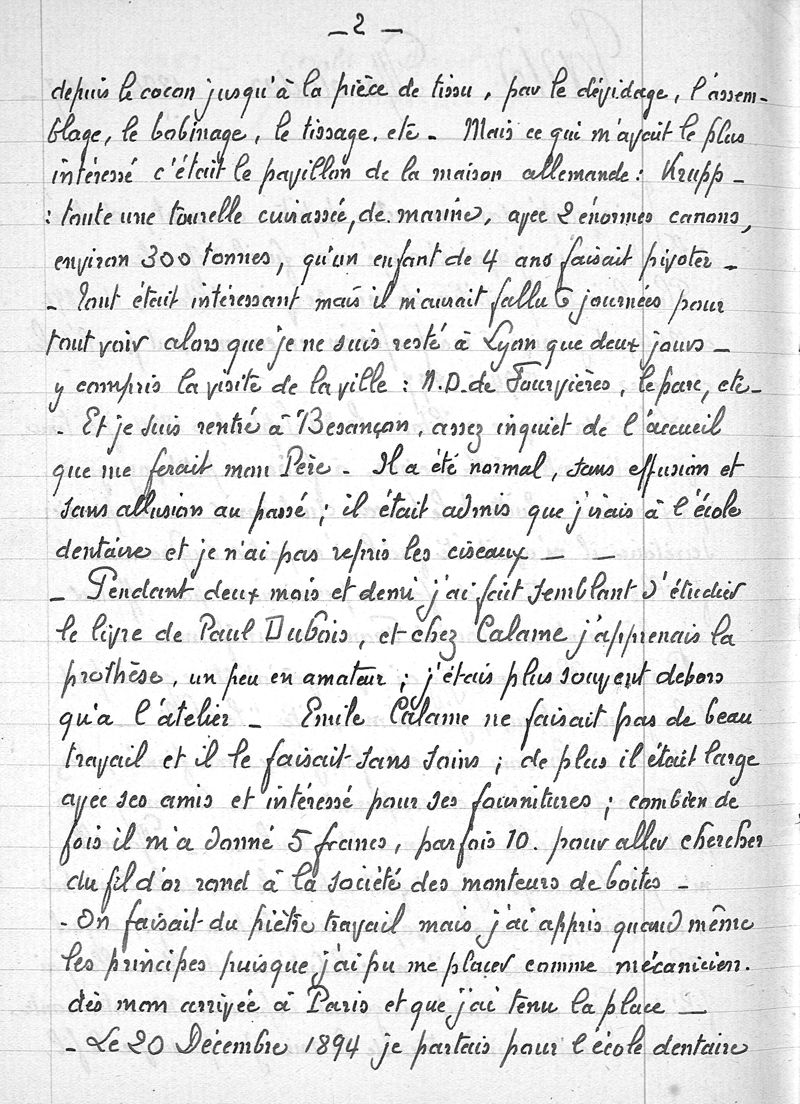 _ 2 _
depuis le cocon jusqu'à la pièce de tissu, par le dévidage, l'assem-
blage, le bobinage, le tissage, etc _ Mais ce qui m'avait le plus
intéressé c'était le pavillon de la maison allemande : Krupp _
: toute une tourelle cuirassée, de marine, avec 2 énormes canons,
environ 300 tonnes, qu'un enfant de 4 ans faisait pivoter _
_ Tout était intéressant mais il m'aurait fallu 6 journées pour
tout voir alors que je ne suis resté à Lyon que deux jours _
y compris la visite de la ville : N.D. de Fourvières, le parc, etc _
- Et je suis rentré à Besançon, assez inquiet de l'accueil
que me ferait mon Père _ Il a été normal, sans effusion et
sans allusion au passé ; il était admis que j'irais à l'école
dentaire et je n'ai pas repris les ciseaux _ _
_ Pendant deux mois et demi j'ai fait semblant d'étudier
le livre de Paul Dubois, et chez Calame j'apprenais la
prothèse, un peu en amateur ; j'étais plus souvent dehors
qu'a l'atelier _ Emile Calame ne faisait pas de beau
travail et il le faisait sans soins ; de plus il était large
avec ses amis et intéressé pour ses fournitures ; combien de
fois il m'a donné 5 francs, parfois 10. pour aller chercher
du fil d'or rond à la société des monteurs de boites _
- On faisait du piètre travail mais j'ai appris quand même
les principes puisque j'ai pu me placer comme mécanicien.
dès mon arrivée à Paris et que j'ai tenu la place _
_ Le 20 Décembre 1894 je partais pour l'école dentaire